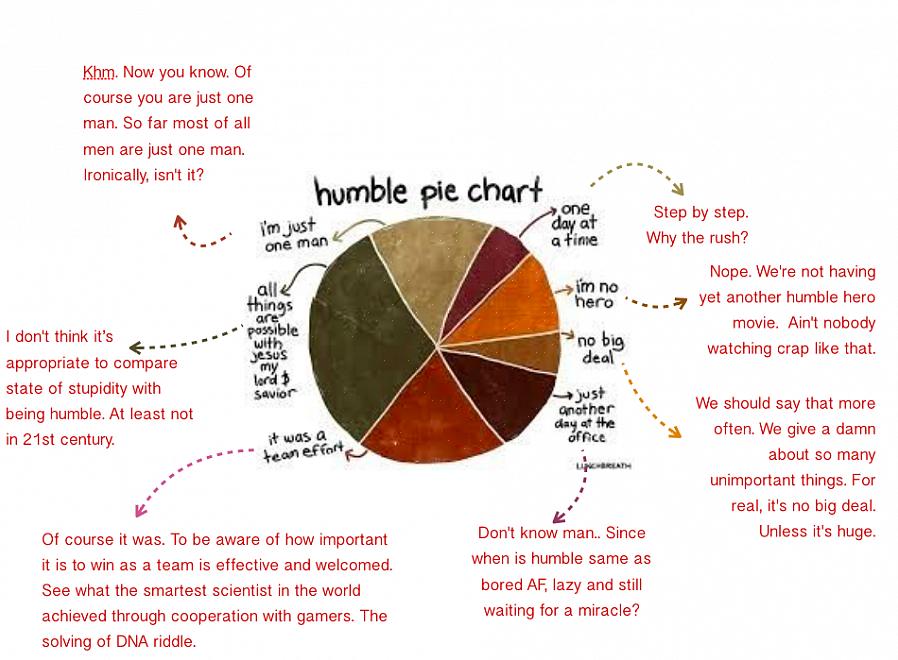 Khm. Now you know. Of
course you are just one
man. So far most of all
men are just one man.
Ironically, isn't it?
humble pie chart
i'm just
one man
one
day at
a time
Step by step.
Why the rush?
i'm no
hero
Nope. We're not having
yet another humble hero
movie. Ain't nobody
watching crap like that.
all
things
are
possible
with
jesus
my
lord $
savior
no big
deal
I don't think it's
appropriate to compare
state of stupidity with
being humble. At least not
in 21st century.
We should say that more
often. We give a damn
about so many
unimportant things. For
real, it's no big deal.
Unless it's huge.
just
another
day at the
office
it was a
team effort
LUNCHBREATH
Of course it was. To be aware of how important
it is to win as a team is effective and welcomed.
See what the smartest scientist in the world
achieved through cooperation with gamers. The
solving of DNA riddle.
Don't know man.. Since
when is humble same as
bored AF, lazy and still
waiting for a miracle?